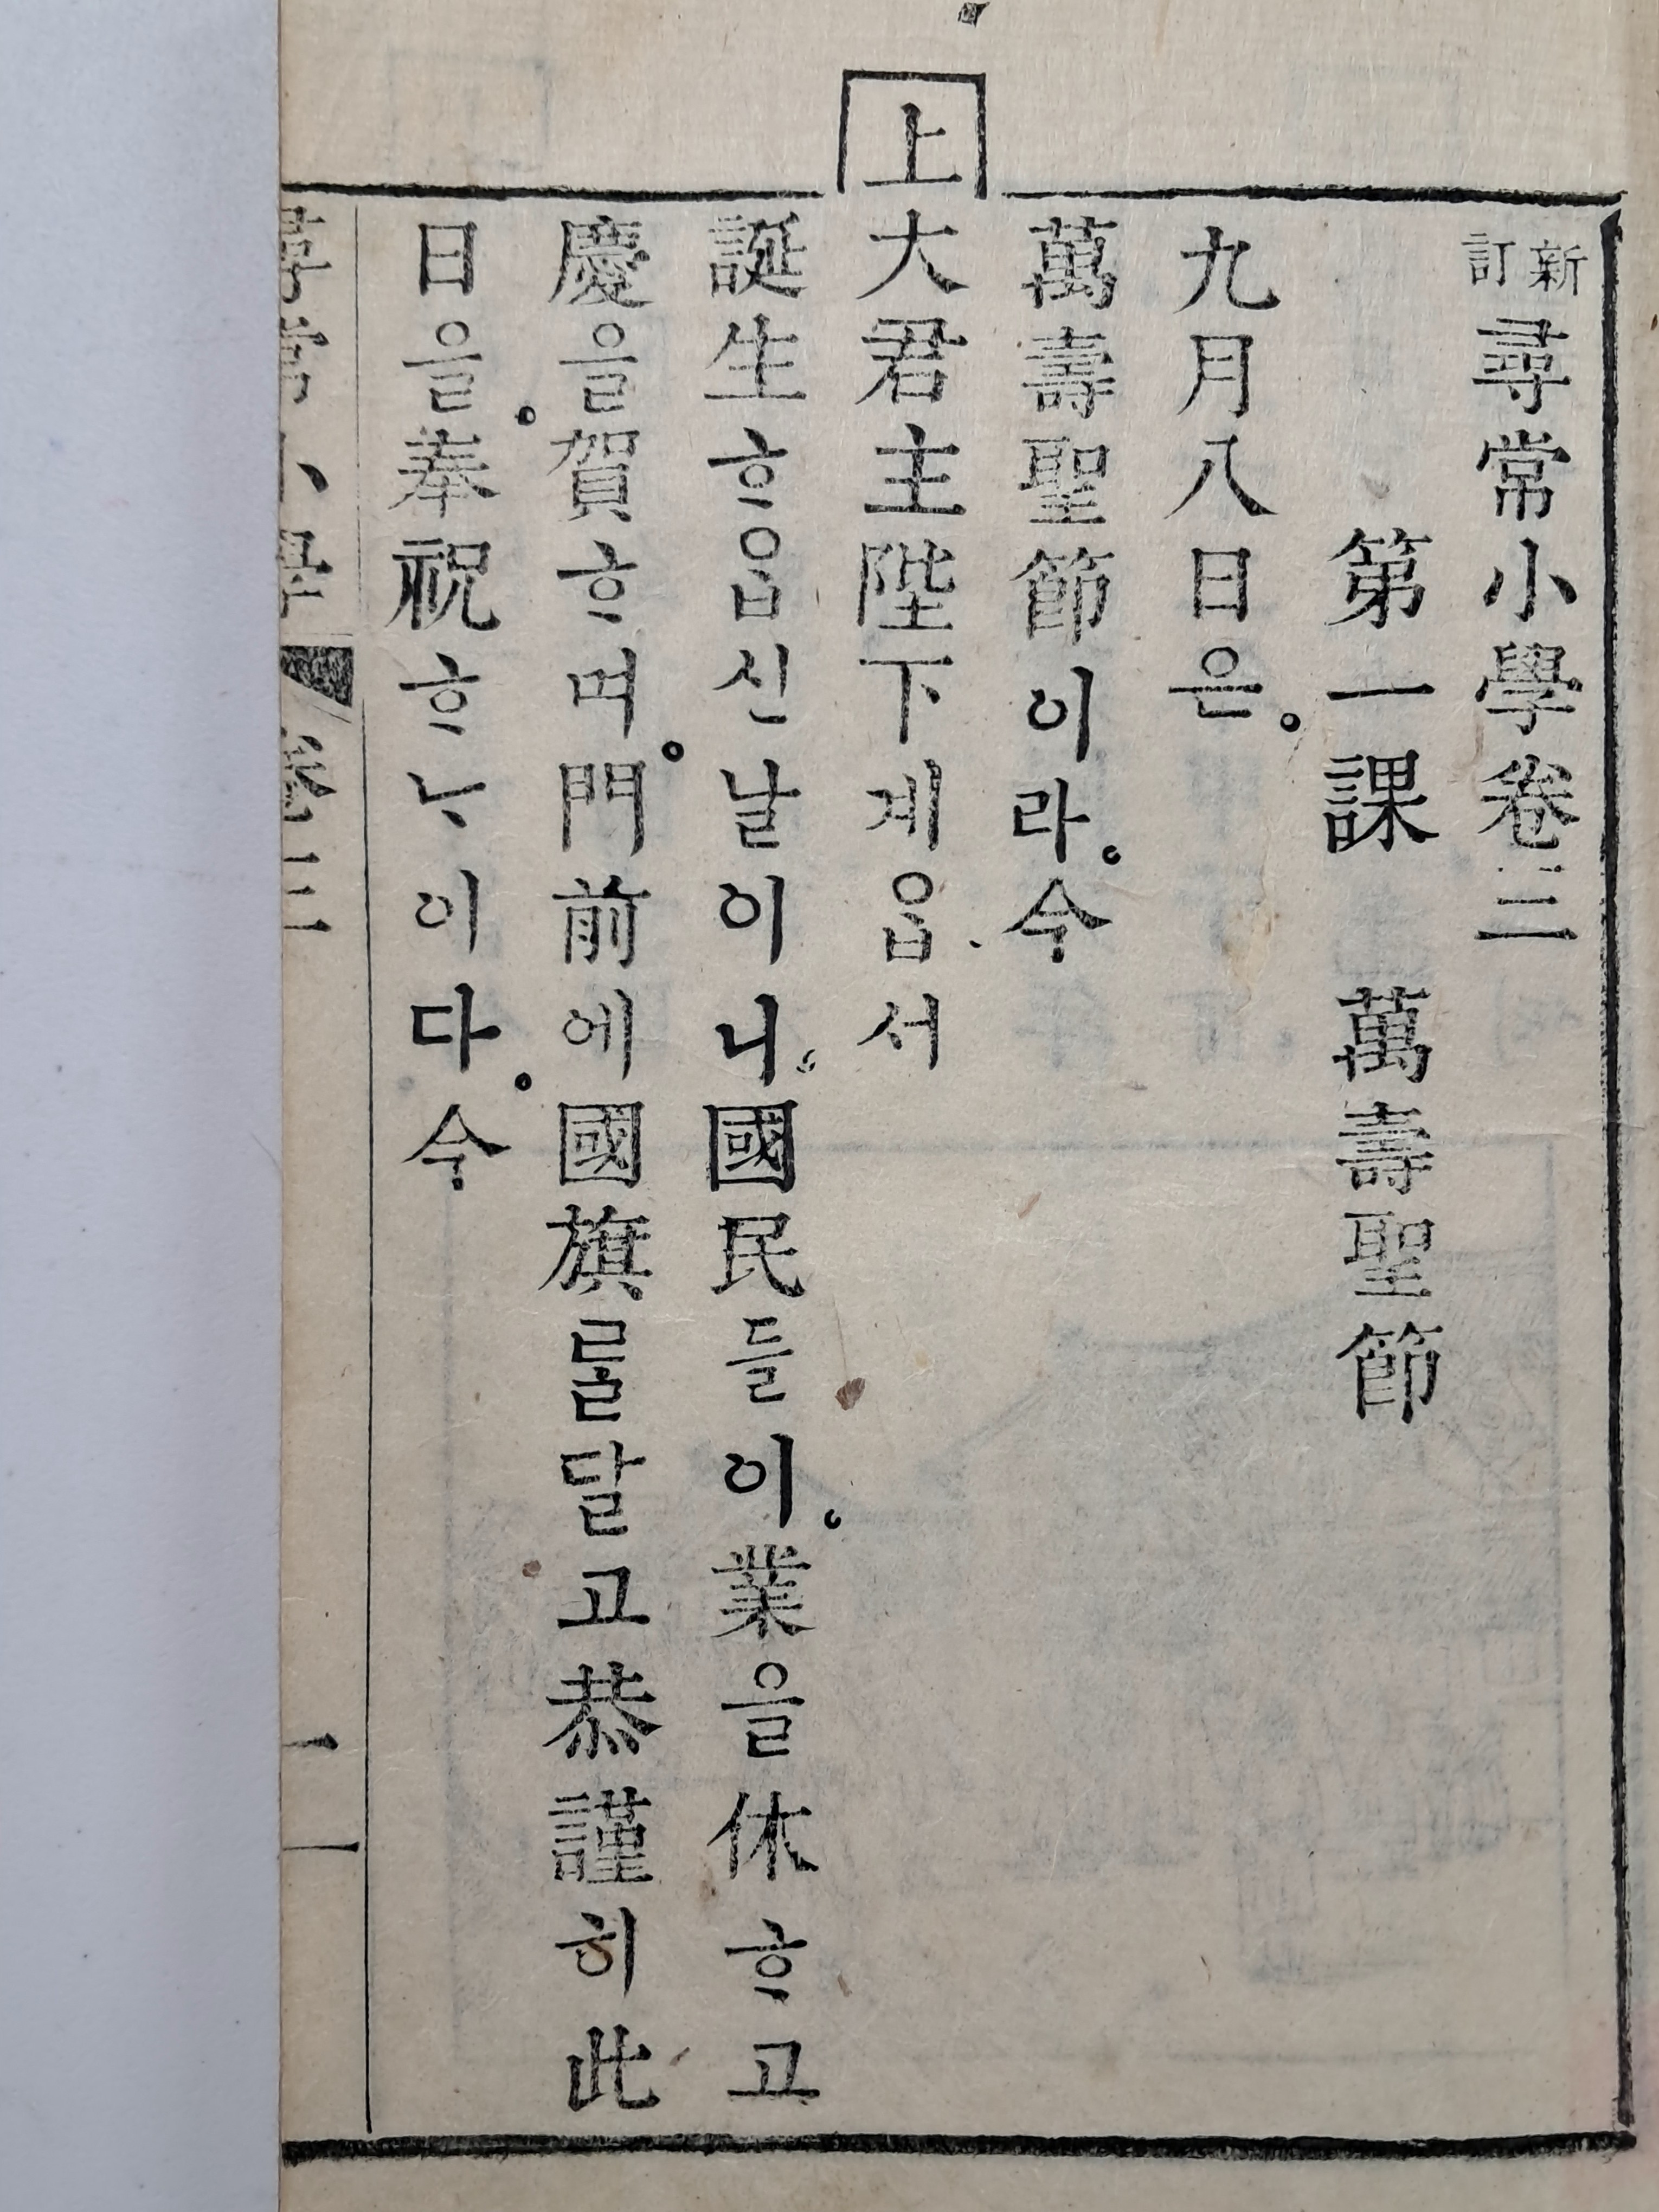 新訂尋常小學卷三
第一課 萬壽聖節
九月八日은。
萬壽聖節이라。今
上大君主陛下계ᄋᆞᆸ서
誕生ᄒᆞᄋᆞᆸ신날이니。國民들이。業을休ᄒᆞ고
慶을賀ᄒᆞ며。門前에國旗ᄅᆞᆯ달고恭謹히此
日을。奉祝ᄒᆞᄂᆞ이다。今
尋常小學 卷三 一